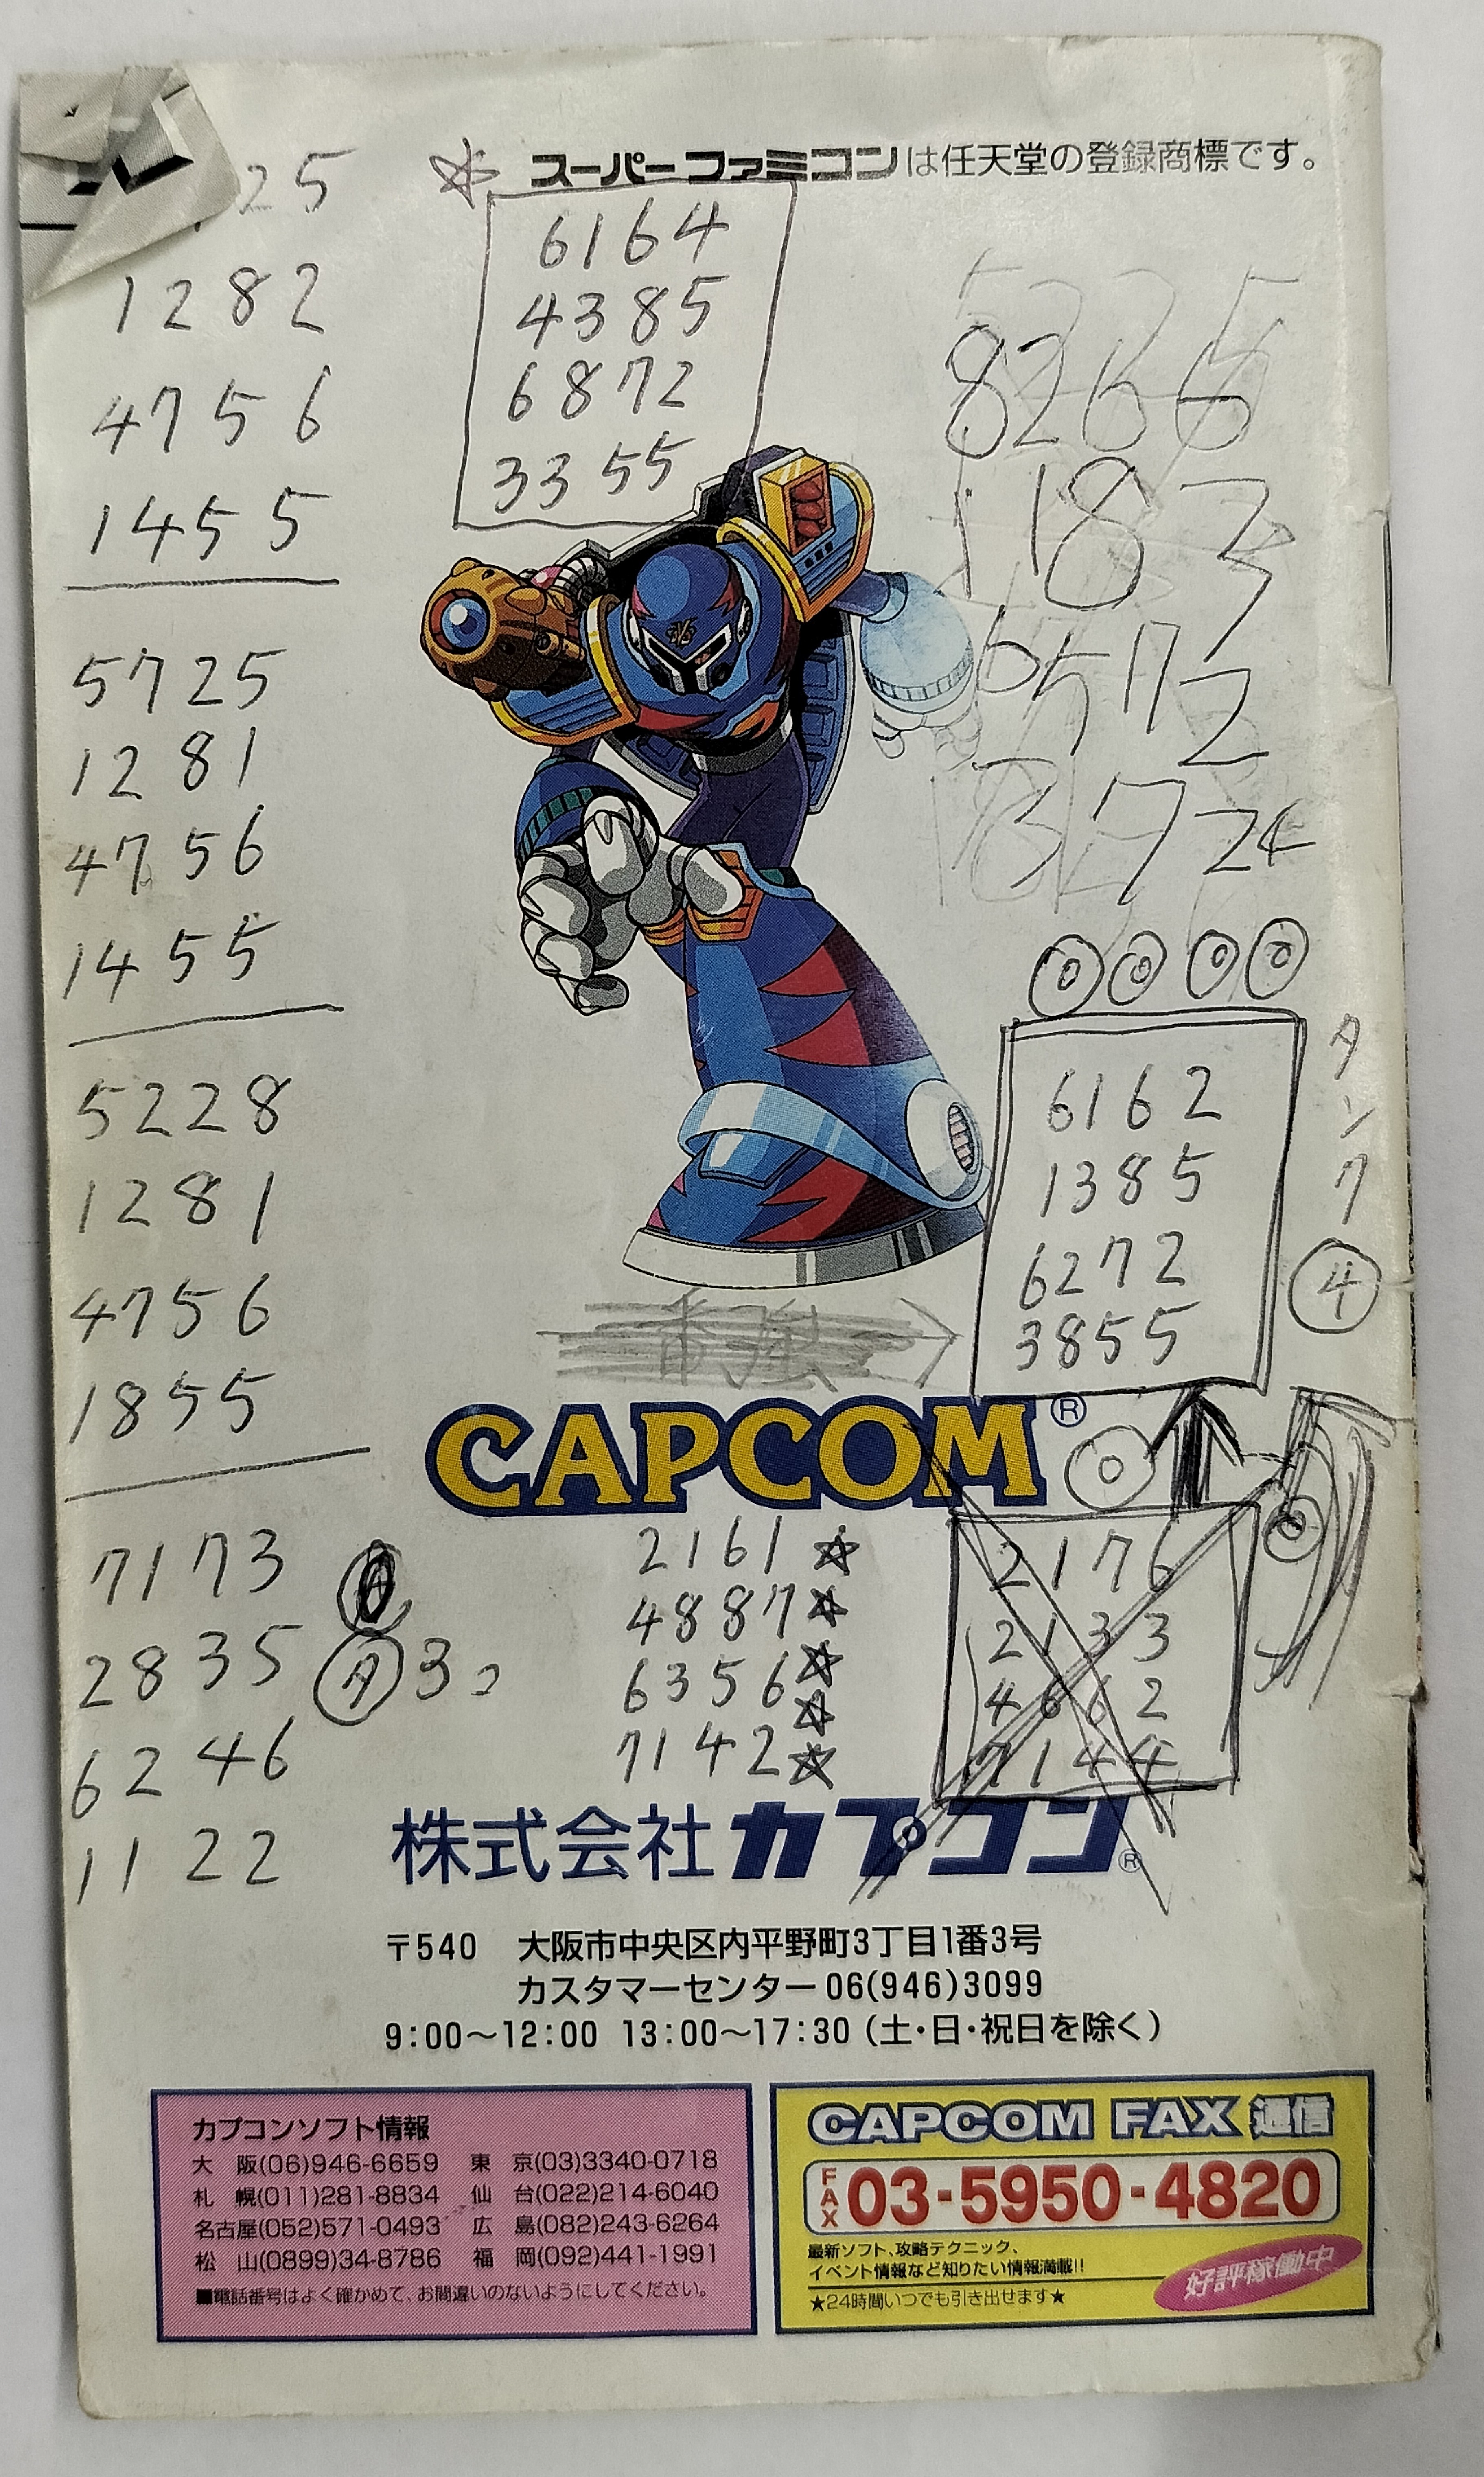 25
1282
4756
1455
5725
1281
4756
1455
5228
1281
4756
1855
7173
2835 タ 3コ
6246
1122
スーパーファミコンは任天堂の登録商標です。
6164
4385
6872
3355
6572
タンク④
6162
1385
6272
3855
CAPCOM®
2161
4887
6356
7142
2176
2133
4662
7144
株式会社カプコン®
〒540 大阪市中央区内平野町3丁目1番3号
カスタマーセンター06(946)3099
9:00〜12:00 13:00〜17:30(土・日・祝日を除く)
カプコンソフト情報
大 阪(06)946-6659 東 京(03)3340-0718
札 幌(011)281-8834 仙 台(022)214-6040
名古屋(052)571-0493 広 島(082)243-6264
松 山(0899)34-8786 福 岡(092)441-1991
■電話番号はよく確かめて、お間違いのないようにしてください。
CAPCOM FAX 通信
FAX 03-5950-4820
最新ソフト、攻略テクニック、
イベント情報など知りたい情報満載!!
★24時間いつでも引き出せます★
好評稼働中